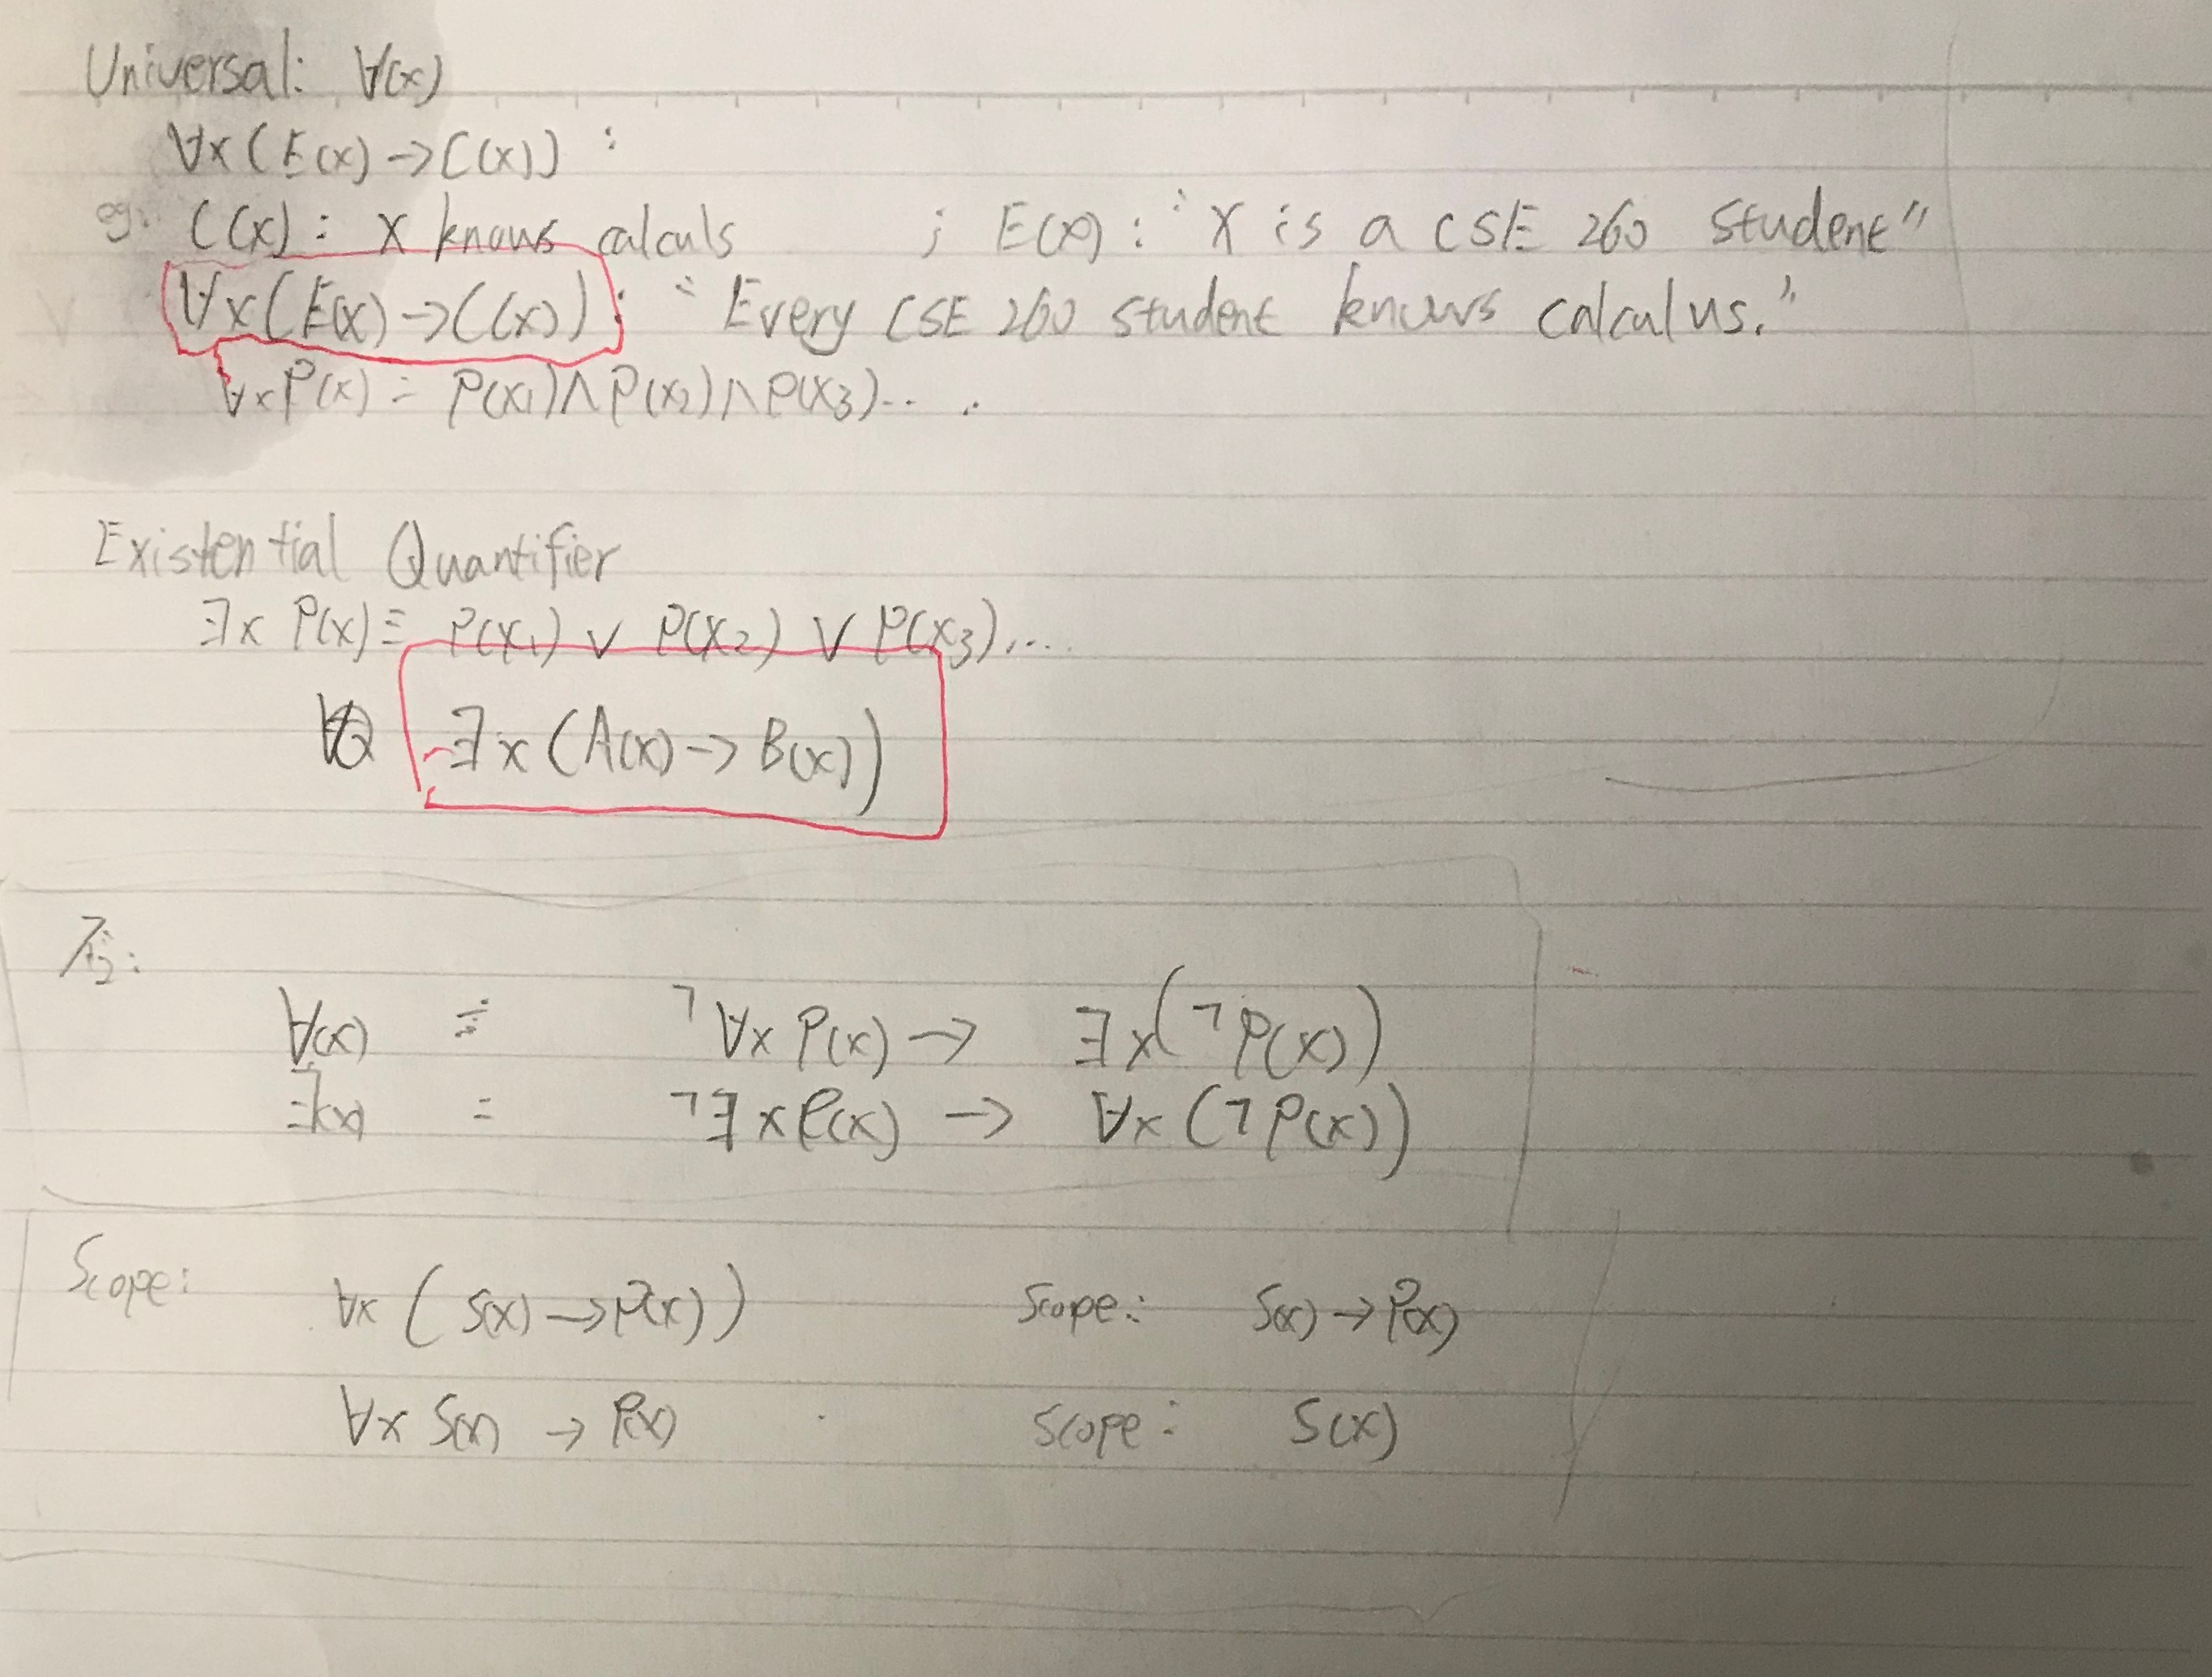 Universal: ∀(x)
∀x(E(x)→C(x)) :
eg: C(x): x knows calculs ; E(x): "X is a CSE 260 student"
∀x(E(x)→C(x)): "Every CSE 260 student knows calculus."
∀xP(x) = P(x₁)∧P(x₂)∧P(x₃)....
Existential Quantifier
∃x P(x) ≡ P(x₁) ∨ P(x₂) ∨ P(x₃)....
∃x(A(x)→B(x))
∀(x) ≡ ¬∀x P(x) → ∃x(¬P(x))
∃(x) = ¬∃xP(x) → ∀x(¬P(x))
Scope: ∀x(S(x)→P(x)) Scope: S(x)→P(x)
∀x S(x) → P(x) Scope: S(x)